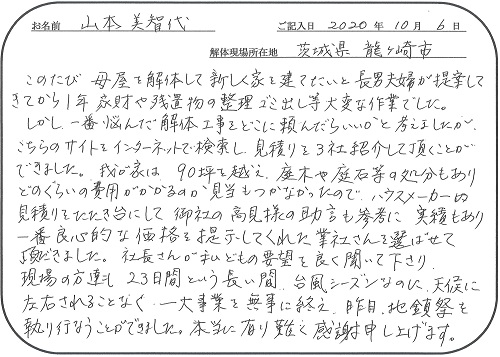 お名前 山本 美智代 ご記入日 2020年 10月 6日
解体現場所在地 茨城県 龍ヶ崎市
このたび 母屋を解体して新しく家を建てたいと長男夫婦が提案して
きてから1年 家財や残置物の整理 ゴミ出し等大変な作業でした。
しかし、一番悩んだ解体工事をどこに頼んだらいいかと考えましたが、
こちらのサイトをインターネットで検索し、見積りを3社紹介して頂くことが
できました。我が家は 90坪を越え、庭木や庭石等の処分もあり
どのぐらいの費用がかかるのか見当もつかなかったので、ハウスメーカーの
見積りをたたき台にして 御社の高見様の助言も参考に 実績もあり
一番良心的な価格を提示してくれた業社さんを選ばせて
頂だきました。社長さんが私どもの要望を良く聞いて下さり、
現場の方達も 23日間という長い間、台風シーズンなのに、天候に
左右されることなく、一大事業を無事に終え、昨日、地鎮祭を
執り行なうことができました。本当に有り難く感謝申し上げます。